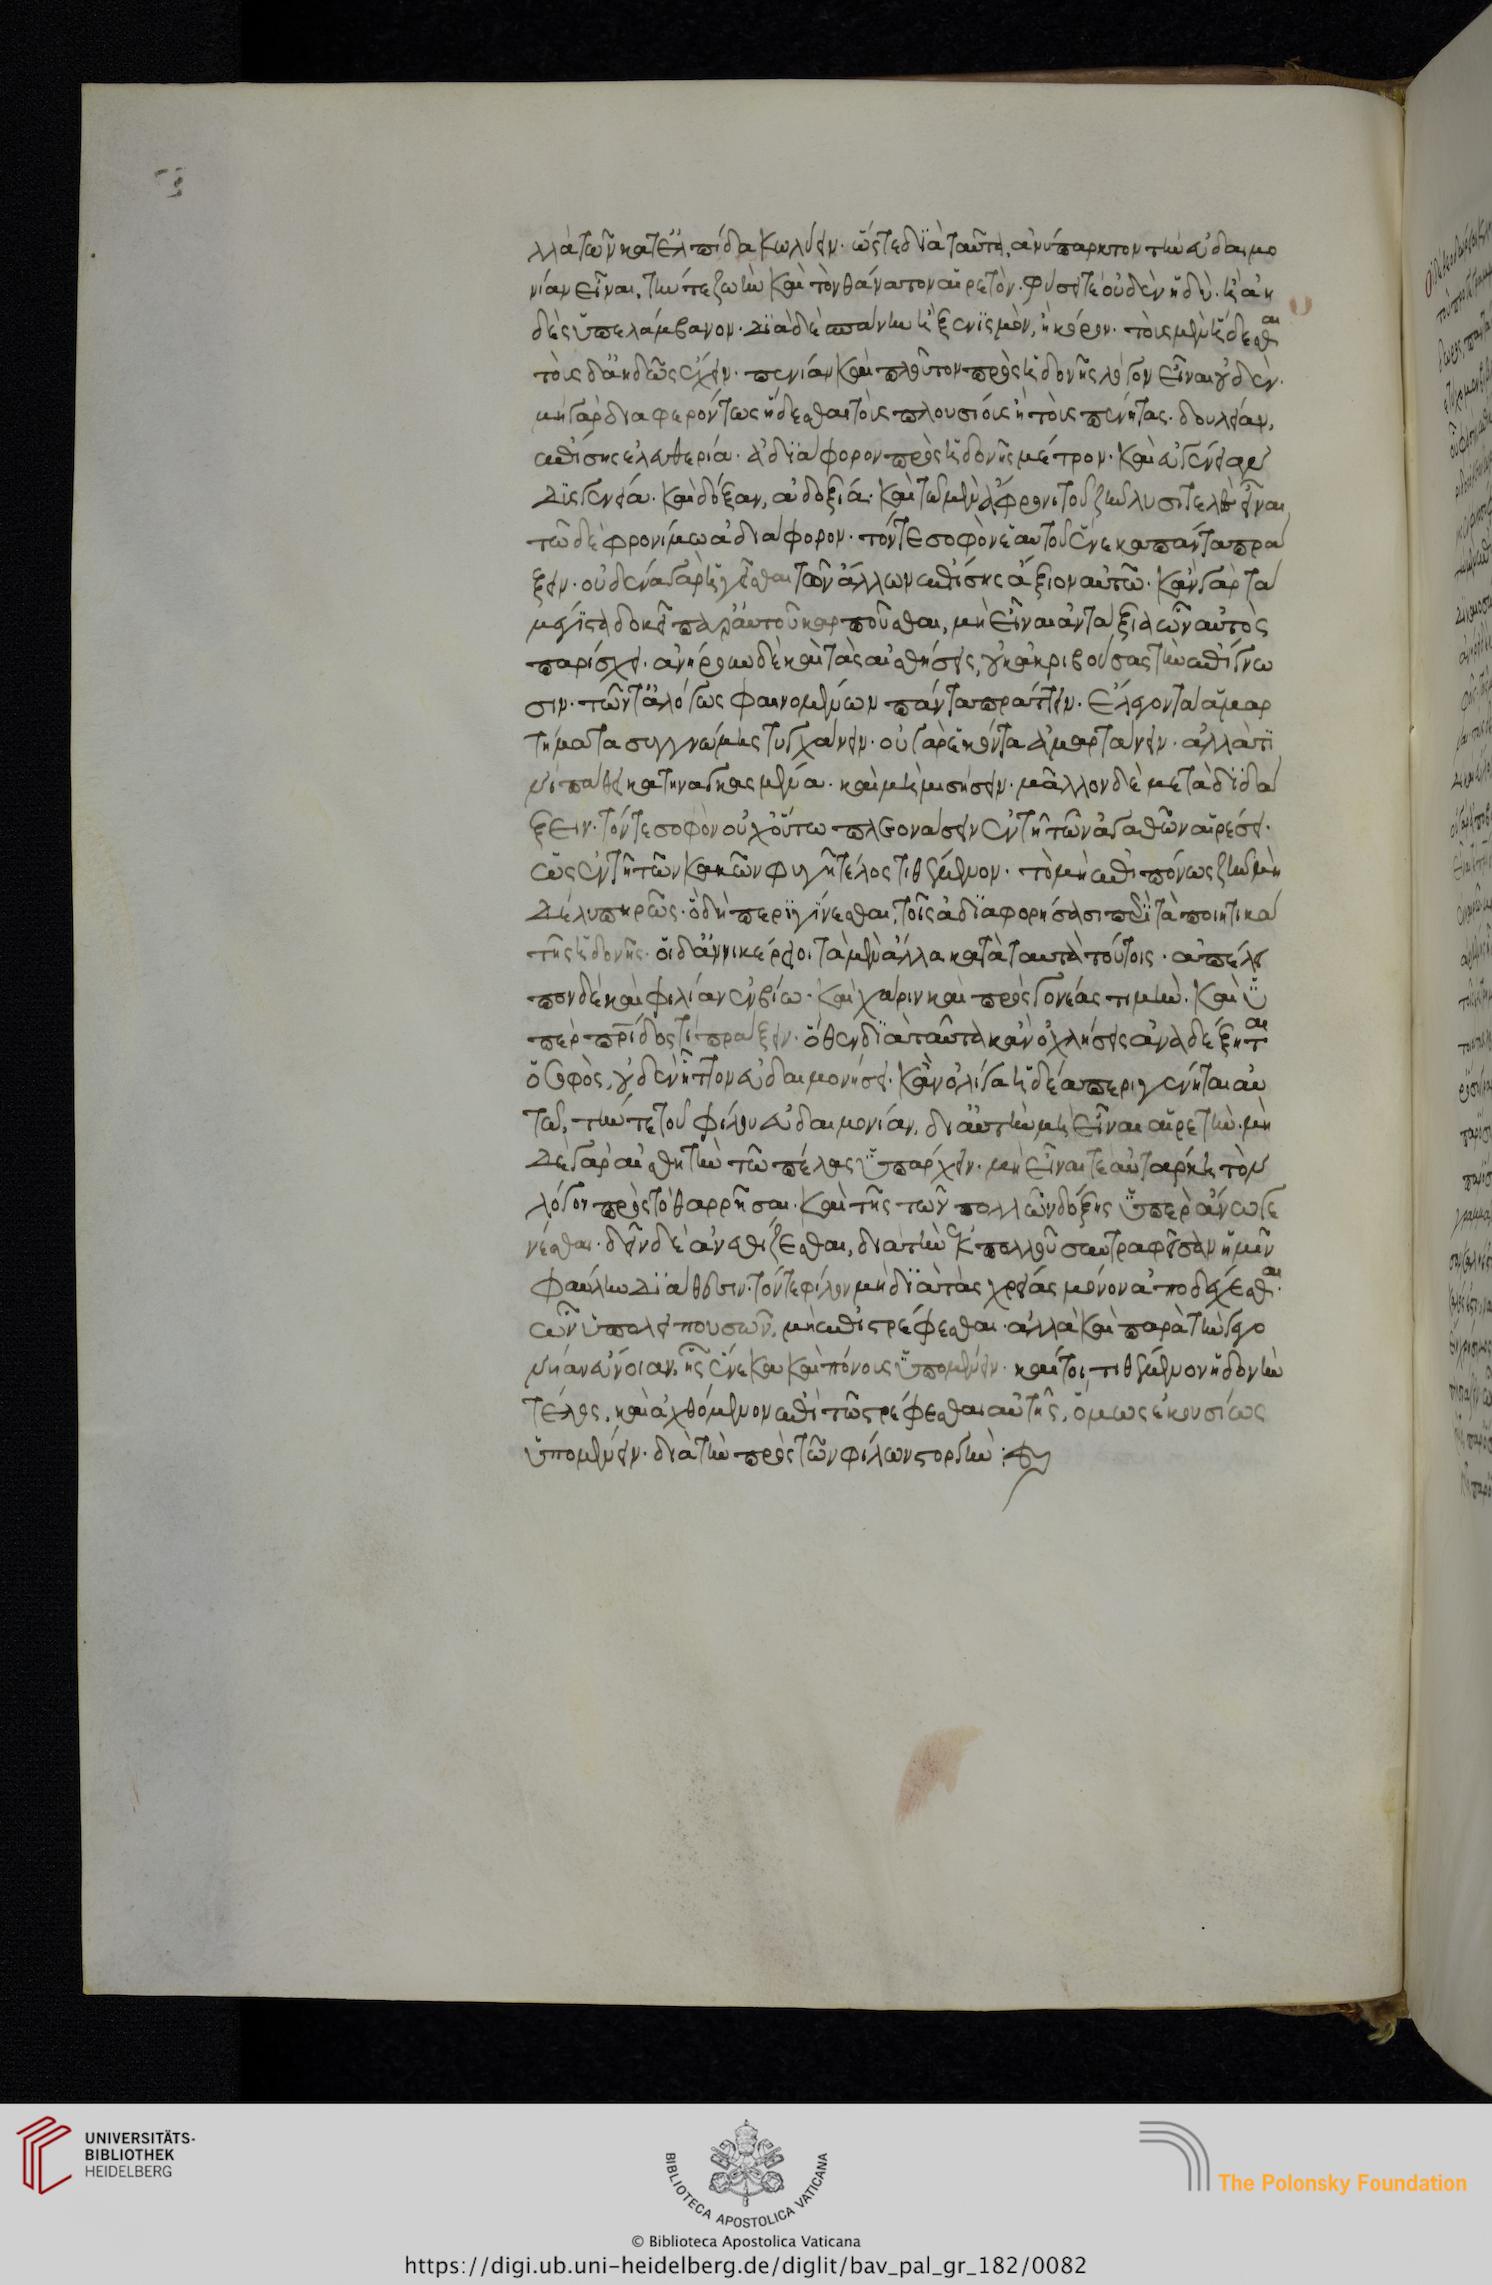 λλὰ τῶν κατ' ἐλπίδα κωλύειν· ὥστε διὰ ταῦτα, ἀνύπαρκτον τὴν εὐδαιμο
νίαν εἶναι, τήν τε ζωὴν καὶ τὸν θάνατον αἱρετόν. φύσει τε οὐδὲν ἡδὺ ἢ ἀη
δὲς ὑπελάμβανον· διὰ δὲ σπάνιν ἢ ξενισμὸν, ἢ κόρον· τοὺς μὲν ἥδεσθαι
τοὺς δ' ἀηδῶς ἔχειν· πενίαν καὶ πλοῦτον πρὸς ἡδονῆς λόγον εἶναι οὐδέν·
μὴ γὰρ διαφερόντως ἥδεσθαι τοὺς πλουσίους ἢ τοὺς πένητας· δουλείαν,
ἐπίσης ἐλευθερία· ἀδιάφορον πρὸς ἡδονῆς μέτρον· καὶ εὐγένειαν
δυσγενεία· καὶ δόξαν, ἀδοξία· καὶ τῷ μὲν ἄφρονι τὸ ζῆν λυσιτελὲς εἶναι
τῷ δὲ φρονίμῳ ἀδιάφορον· τόν τε σοφὸν ἑαυτοῦ ἕνεκα πάντα πρά
ξειν· οὐδένα γὰρ ἡγεῖσθαι τῶν ἄλλων ἐπίσης ἄξιον αὐτῷ· κἂν γὰρ τὰ
μέγιστα δοκεῖ παρ' αὐτοῦ καρποῦσθαι, μὴ εἶναι ἀντάξια ὧν αὐτὸς
παρίσχει· ἀνῄρουν δὲ καὶ τὰς αἰσθήσεις, οὐκ ἀκριβούσας τὴν ἐπίγνω
σιν· τῶν τ' ἀλόγως φαινομένων πάντα πράττειν· ἔλεγον τὰ ἁμαρ
τήματα συγγνώμης τυγχάνειν· οὐ γὰρ ἑκόντα ἁμαρτάνειν· ἀλλὰ τι
νι πάθει κατηναγκασμένα· καὶ μὴ μισήσειν· μᾶλλον δὲ μεταδιδά
ξειν· τόν τε σοφὸν οὐχ οὕτω πλεονάσειν ἐν τῇ τῶν ἀγαθῶν αἱρέσει·
ὡς ἐν τῇ τῶν κακῶν φυγῇ τέλος τιθέμενον· τὸ μὴ ἐπιπόνως ζῆν μη
δὲ λυπηρῶς· ὃ δὴ περιγίνεσθαι, τοῖς ἀδιαφορήσασι περὶ τὰ ποιητικὰ
τῆς ἡδονῆς· οἱ δ' ἀννικέρειοι τὰ μὲν ἄλλα κατὰ ταυτὰ τούτοις· ἀπέλει
πον δὲ καὶ φιλίαν ἐν βίῳ· καὶ χάριν καὶ πρὸς γονέας τιμὴν· καὶ ὑ
πὲρ πρίδος τι πράξειν· ὅθεν διὰ ταῦτα κἂν ὀχλήσεις ἀναδέξηται
ὁ σοφὸς, οὐδὲν ἧττον εὐδαιμονήσει· κἂν ὀλίγα ἡδέα περιγένηται αὐ
τῷ, τήν τε τοῦ φίλου εὐδαιμονίαν, δι' αὑτὴν μὴ εἶναι αἱρετήν· μη
δὲ γὰρ αἰσθητὴν τῷ πέλας ὑπάρχειν· μὴ εἶναι τε αὐτάρκη τὸν
λόγον πρὸς τὸ θαρρῆσαι· καὶ τῆς τῶν πολλῶν δόξης ὑπεράνω γε
νέσθαι· δεῖν δὲ ἀνεθίζεσθαι, διὰ τὴν ἐκ πολλοῦ συντραφεῖσαν ἡμῖν
φαύλην διάθεσιν· τόν τε φίλον μὴ διὰ τὰς χρείας μόνον ἀποδέχεσθαι·
ὧν ὑπολειπουσῶν, μὴ ἐπιστρέφεσθαι· ἀλλὰ καὶ παρὰ τὴν γεγο
νυῖαν εὔνοιαν, ἧς ἕνεκα καὶ πόνους ὑπομένειν· καί τοι τιθέμενον ἡδονὴν
τέλος, καὶ ἀχθόμενον ἐπὶ τῷ στρέφεσθαι αὐτῆς, ὅμως ἑκουσίως
ὑπομένειν· διὰ τὴν πρὸς τῶν φίλων στοργήν:
UNIVERSITÄTS-
BIBLIOTHEK
HEIDELBERG
BIBLIOTECA APOSTOLICA VATICANA
The Polonsky Foundation
© Biblioteca Apostolica Vaticana
https://digi.ub.uni-heidelberg.de/diglit/bav_pal_gr_182/0082